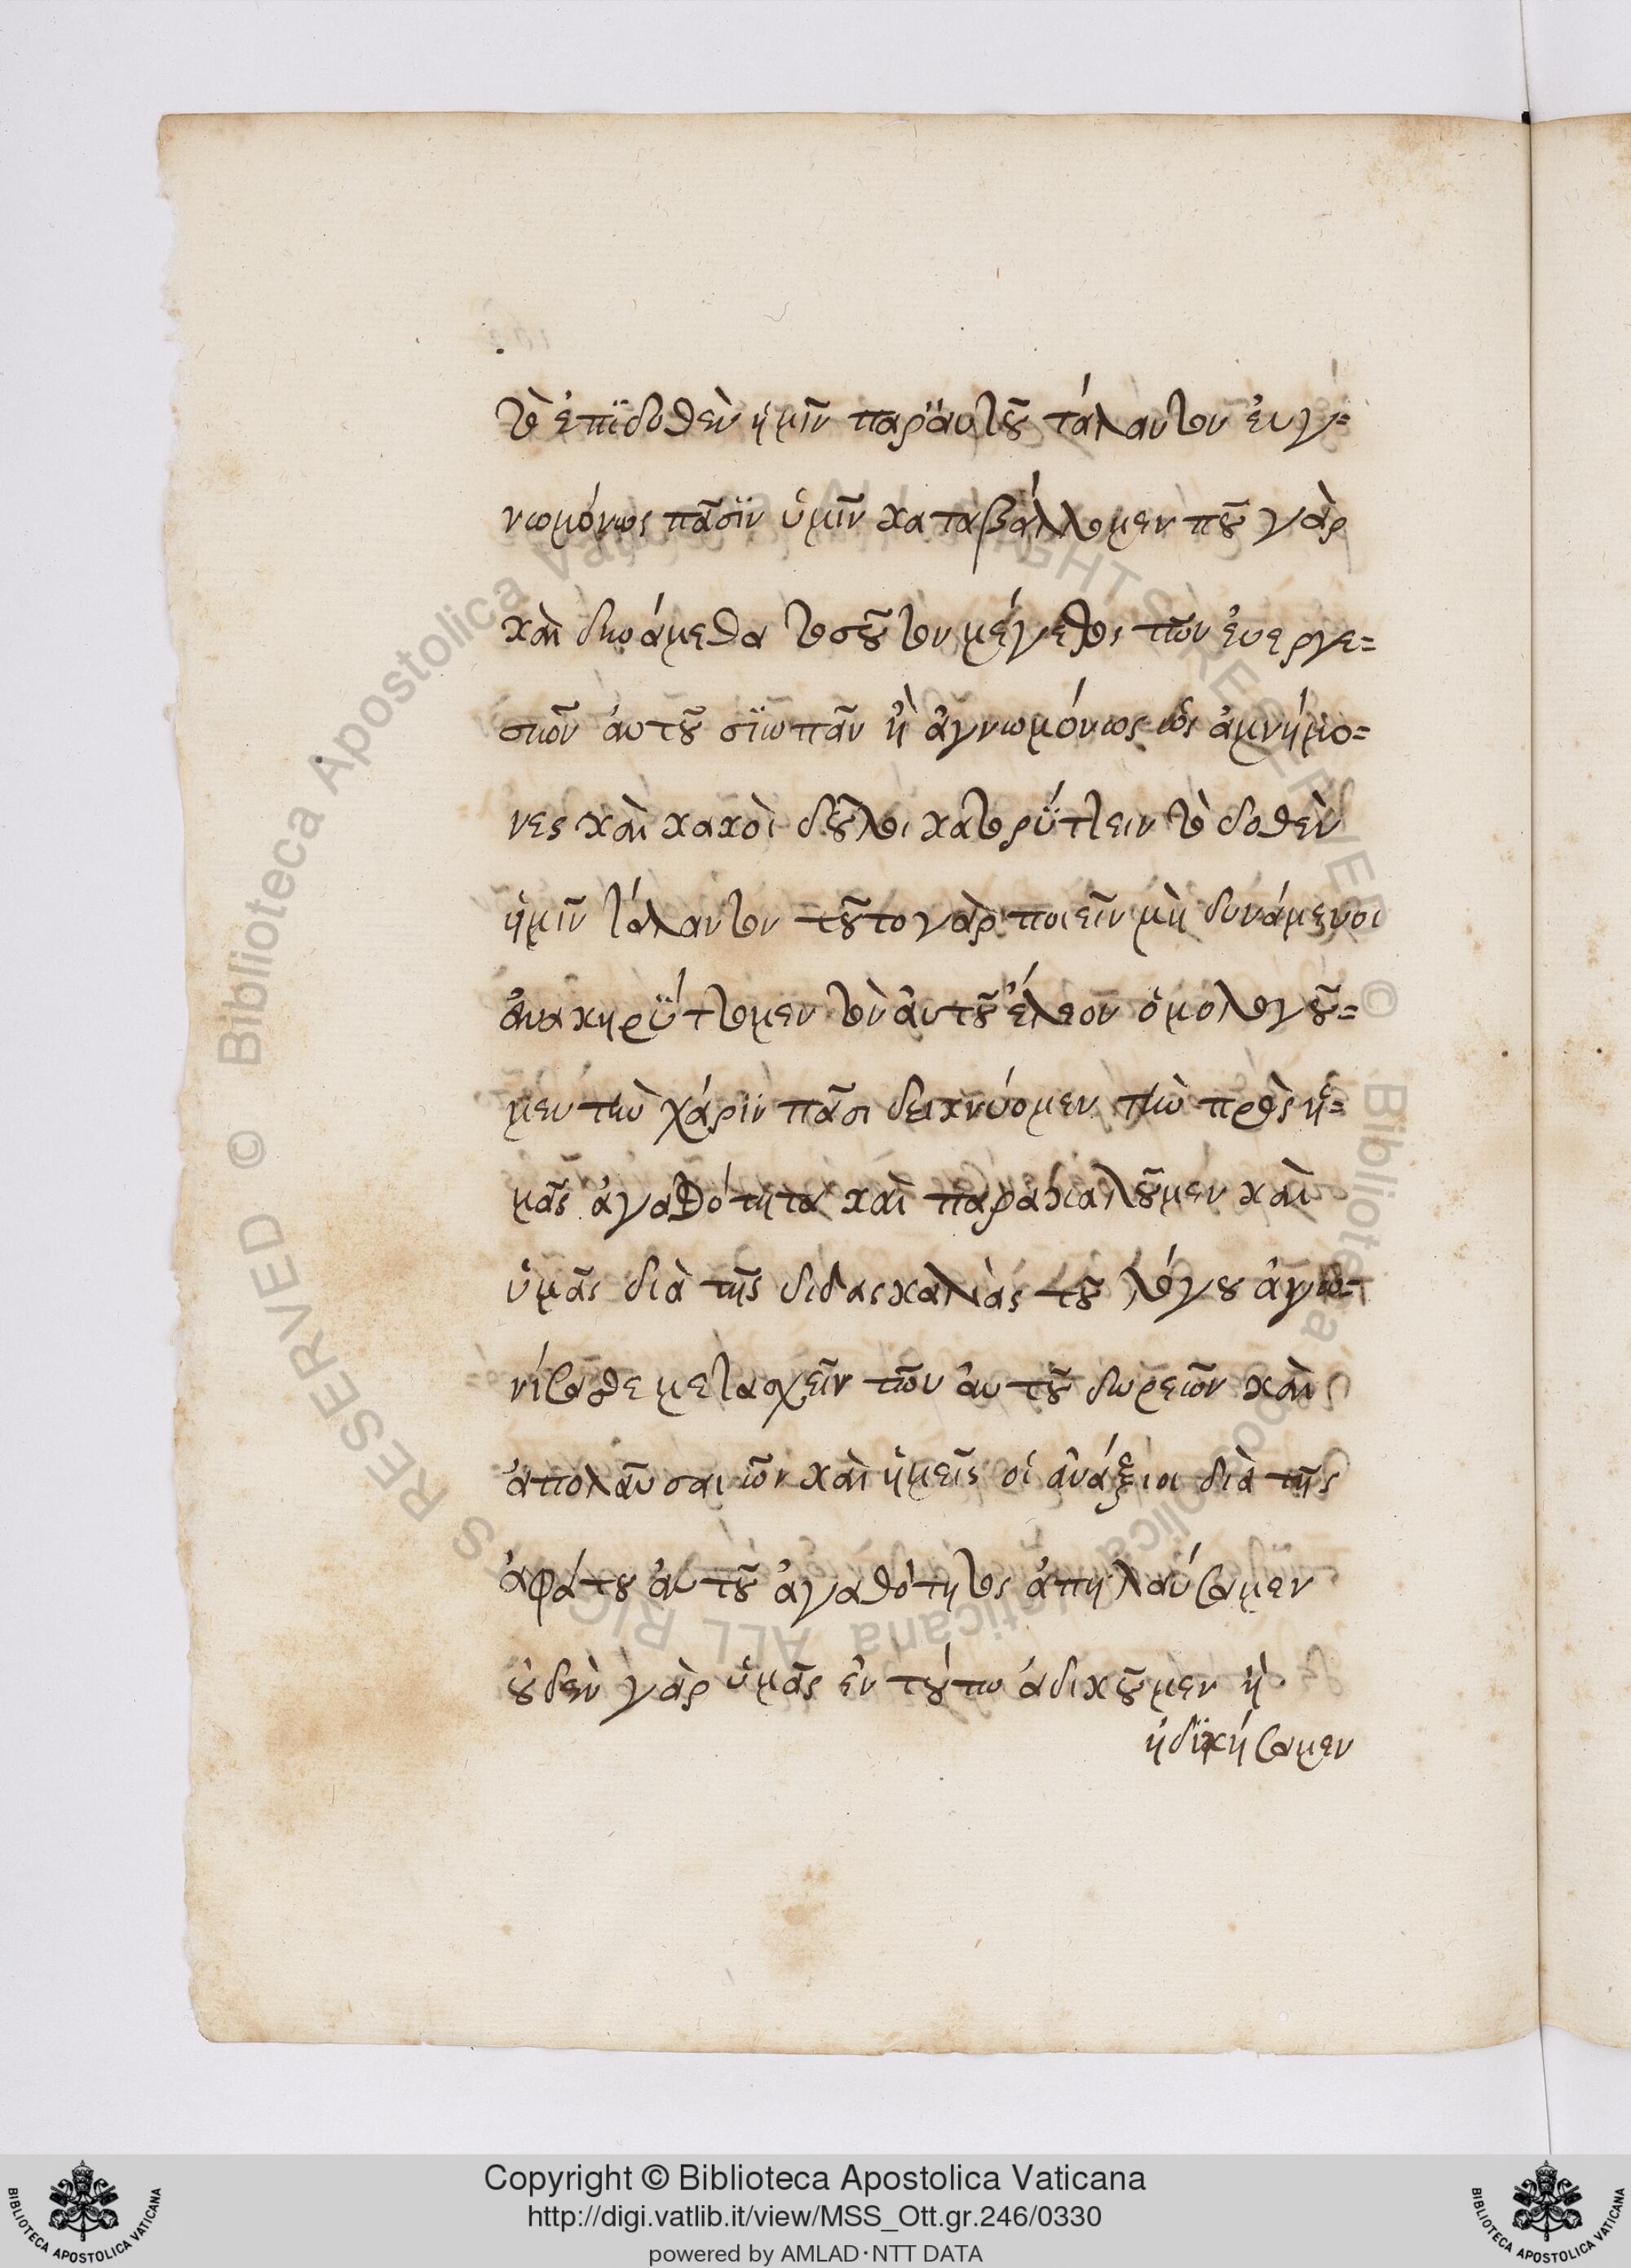 τὸ ἐπϊδοθὲν ἡμῖν παρ' ἀυτοῦ τάλαντον ἐυγ=
νωμόνως πᾶσϊν ὑμῖν καταβάλλομεν ποῦ γὰρ
καὶ δυνάμεθα τοσοῦτον μέγεθος τῶν ἐυεργε=
σιῶν ἀυτοῦ σϊωπᾶν ἢ ἀγνωμόνως ὡς ἀμνήμο=
νες καὶ κακοὶ δοῦλοι κατορύττειν τὸ δοθὲν
ἡμῖν τάλαντον τοῦτο γὰρ ποιεῖν μὴ δυνάμενοι
ἀνακηρύττομεν τὸν ἀυτοῦ ἔλεον ὁμολογοῦ=
μεν τὴν χάριν πᾶσι δεικνύομεν τὴν πρὸς ἡ=
μᾶς ἀγαθότητα καὶ παρακαλοῦμεν καὶ
ὑμᾶς διὰ τῆς διδασκαλίας τοῦ λόγου ἀγω=
νίσασθε μετασχεῖν τῶν ἀυτοῦ δωρεῶν καὶ
ἀπολαῦσαι ὧν καὶ ἡμεῖς οἱ ἀνάξιοι διὰ τῆς
ἀφάτου ἀυτοῦ ἀγαθότητος ἀπηλαύσαμεν
οὐδὲν γὰρ ὑμᾶς ἐν τούτω ἀδικοῦμεν ἢ
ἠδϊκήσαμεν
Copyright © Biblioteca Apostolica Vaticana
http://digi.vatlib.it/view/MSS_Ott.gr.246/0330
powered by AMLAD·NTT DATA
BIBLIOTECA APOSTOLICA VATICANA
BIBLIOTECA APOSTOLICA VATICANA